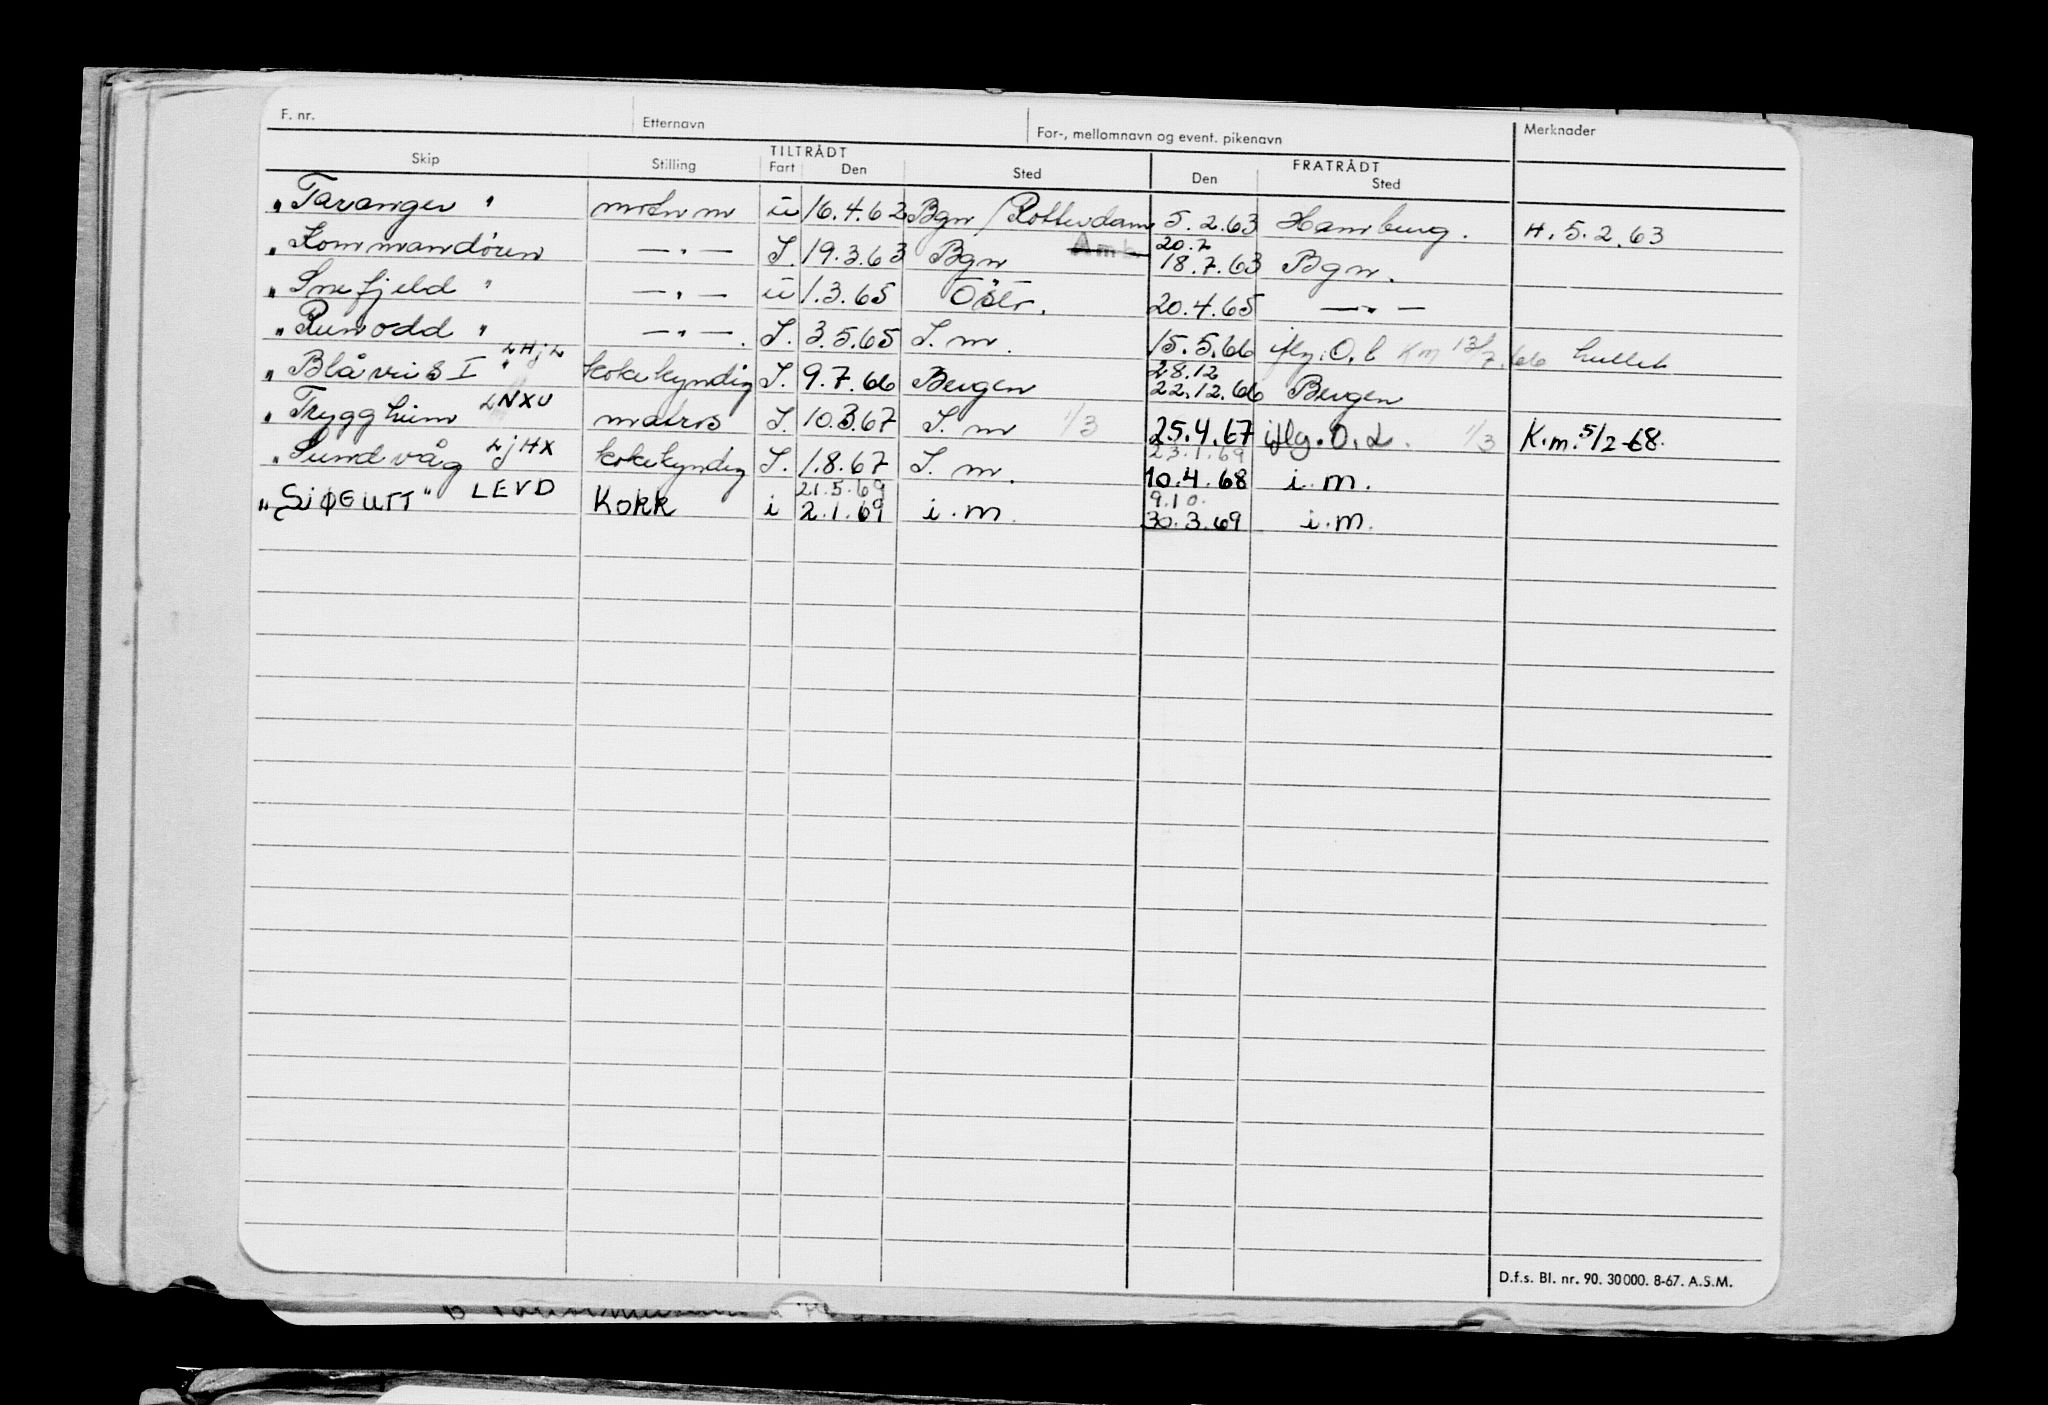 F. nr. Etternavn For-, mellomnavn og event. pikenavn Merknader
TILTRÅDT FRATRÅDT
Skip Stilling Fart Den Sted Den Sted
„Taranger" ü 16.4.62 Bgn / Rotterdam 5.2.63 Hamburg. H. 5.2.63
„Kommandören — „ — I. 19.3.63 Bgn 20.7 18.7.63 Bgn.
„Snefjeld" — „ — ü 1.3.65 20.4.65 — „ —
„Runodd" — „ — . I. 3.5.65 I. m. 15.5.66 iflg. O.l Km 13/7.66 hullet
„Blåveis I" LHJL kokekyndig I. 9.7.66 Bergen 28.12 22.12.66 Bergen
„Tryggheim LNXU matros I. 10.3.67 I. m 1/3 25.4.67 iflg. O. L. 1/3 K.m. 5/2-68.
„Sundvåg LJHX kokekyndig I. 1.8.67 I. m. 23.1.69 10.4.68 i.m.
„SIØGUTT" LEVD Kokk i 21.5.69 2.1.69 i.m. 9.10. 30.3.69 i.m.
D.f.s. Bl. nr. 90. 30000. 8-67. A.S.M.